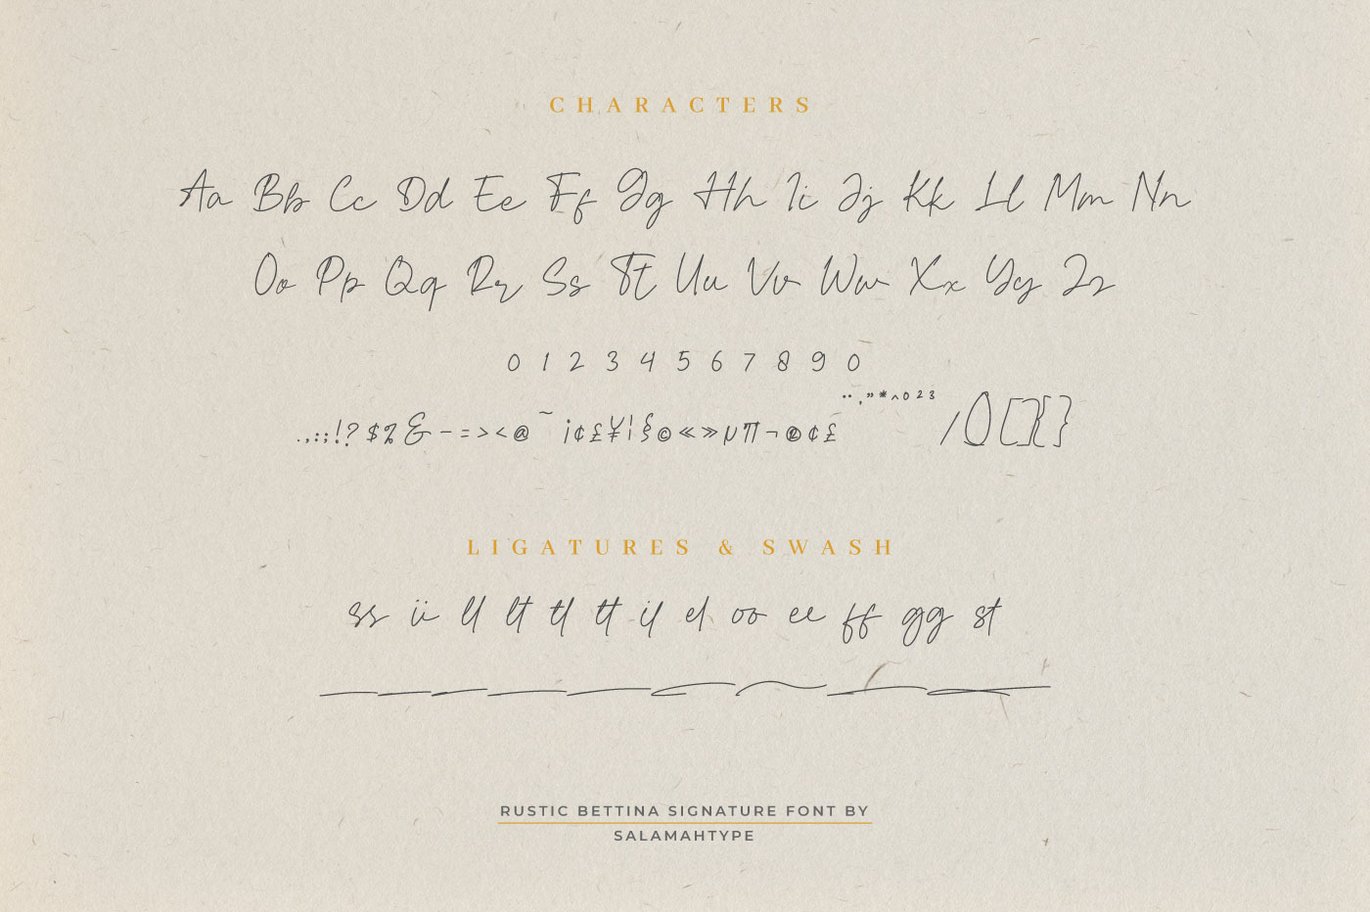 CHARACTERS
Aa Bb Cc Dd Ee Ff Gg Hh Ii Jj Kk Ll Mm Nn
Oo Pp Qq Rr Ss Tt Uu Vv Ww Xx Yy Zz
0 1 2 3 4 5 6 7 8 9 0
.,:;!?$%&-=><@~¡¢£¥¦§©«»µ¶¬®¢£¨¸"*^023/()[]{}
LIGATURES & SWASH
ss ii ll lt tl tt il el oo ee ff gg st
RUSTIC BETTINA SIGNATURE FONT BY
SALAMAHTYPE